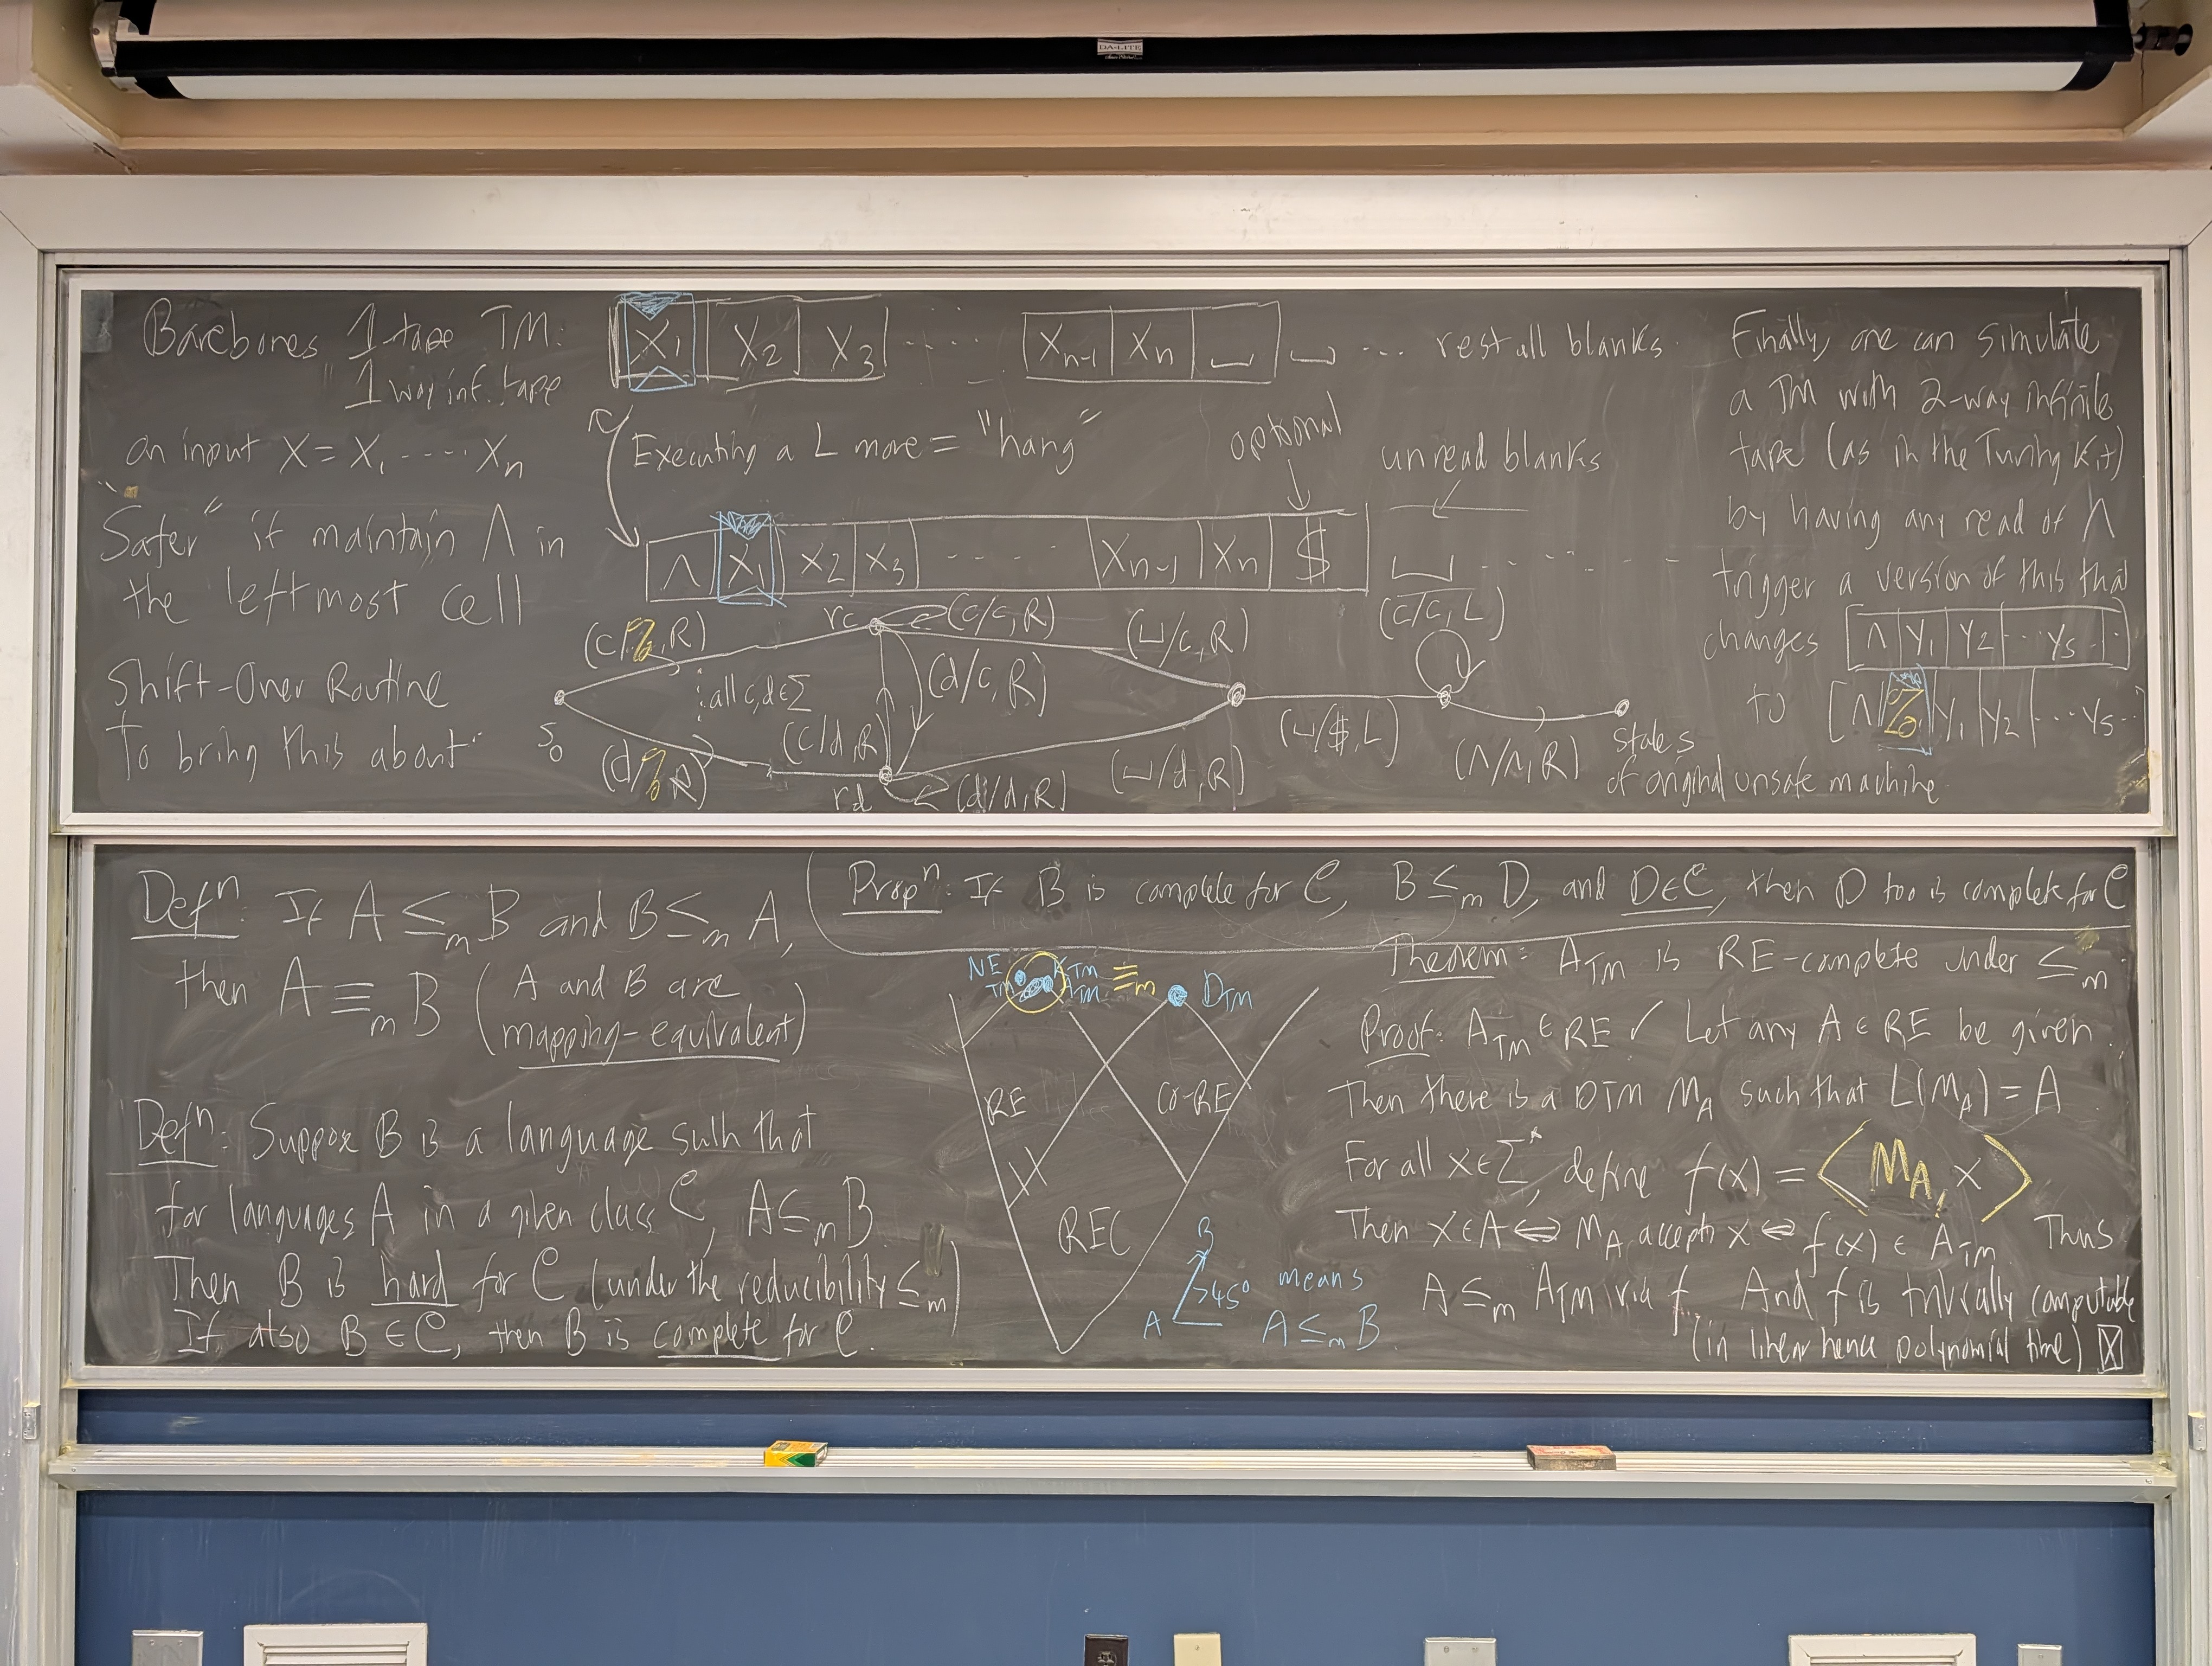 DA-LITE
Barebones 1 tape TM:
1 way inf. tape
X₁ X₂ X₃ ..... Xₙ₋₁ Xₙ ⎵ ⎵ ... rest all blanks
on input X = X₁ ----- Xₙ
Executing a L move = "hang"
optional
unread blanks
"Safer" if maintain Λ in
the leftmost cell
Λ X₁ X₂ X₃ ----- Xₙ₋₁ Xₙ $ ⎵ - - - - -
Shift-Over Routine
To bring this about
S₀
rc
(c/c, R)
(⎵/c, R)
(c/c, L)
: all c,d ∈ Σ
(d/c, R)
(c/d, R)
rd
(d/d, R)
(⎵/d, R)
(⎵/$, L)
(Λ/Λ, R)
state s
of original unsafe machine
Finally, one can simulate
a TM with 2-way infinite
tape (as in the Turing Kit)
by having any read of Λ
trigger a version of this that
changes [Λ|y₁|y₂|...ys..|
to [Λ|%|y₁|y₂|...ys..]
Defⁿ: If A ≤ₘ B and B ≤ₘ A,
then A ≡ₘ B (A and B are
mapping-equivalent)
Defⁿ: Suppose B is a language such that
for languages A in a given class C, A ≤ₘ B.
Then B is hard for C (under the reducibility ≤ₘ)
If also B ∈ C, then B is complete for C.
Propⁿ: If B is complete for C, B ≤ₘ D, and D ∈ C, then D too is complete for C
NE TM
K TM
A TM
≡ₘ
D TM
RE
co-RE
REC
B
>45° means
A
A ≤ₘ B
Theorem: A TM is RE-complete under ≤ₘ.
Proof: A TM ∈ RE ✓ Let any A ∈ RE be given.
Then there is a DTM M_A such that L(M_A) = A
For all x ∈ Σ*, define f(x) = ⟨M_A, x⟩
Then x ∈ A ⇔ M_A accepts x ⇔ f(x) ∈ A TM. Thus
A ≤ₘ A TM via f. And f is trivially computable
(in linear hence polynomial time) ☒